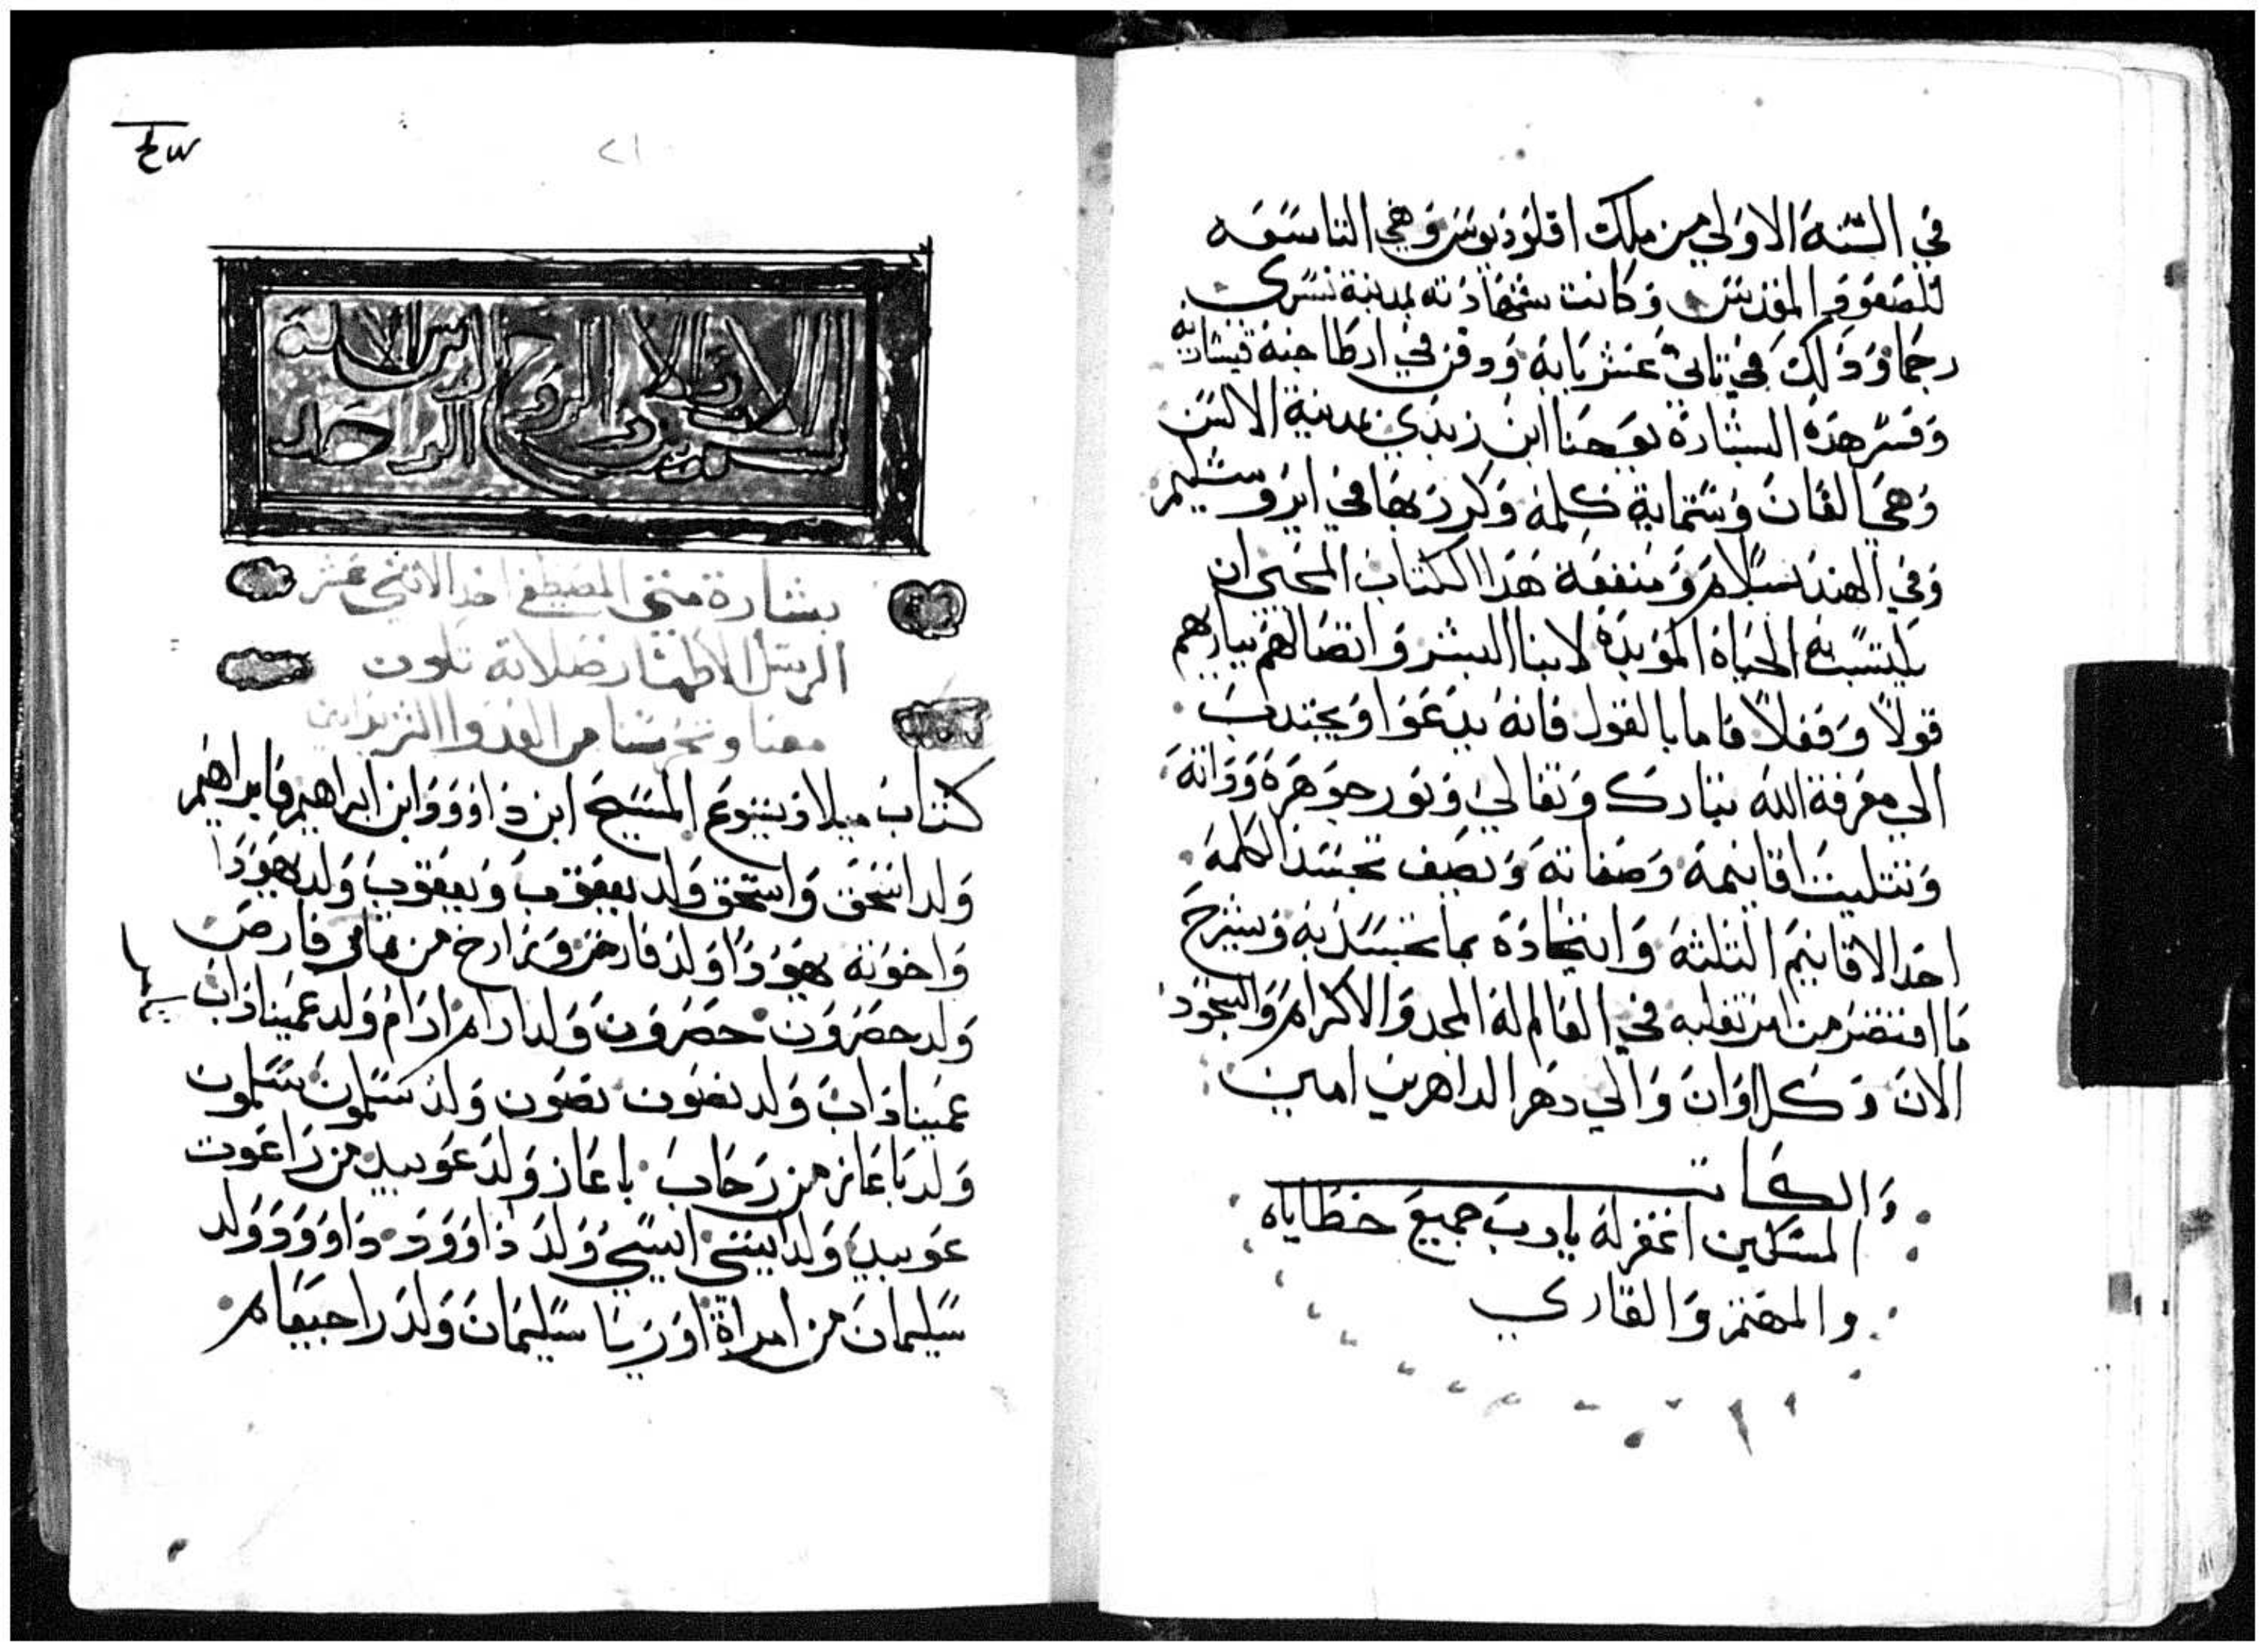 في السنة الاولي من ملك اقلوديوس وهي التاسعه
للصعود المقدس وكانت شهادته بمدينة بشرى
رجما وذلك في ثاني عشر بابه ودفن في ارطاجنة قيسارية
وفسر هذه البشارة يوحنا ابن زبدي بمدينة الالسن
وهي الفان وستماية كلمة وكرر بها في ايروشليم
وفي الهند بسلام ومنفعة هذا الكتاب المحيي ان
يكتسب به الحياة المؤبدة لابنا البشر واتصالهم ببارهم
قولا وفعلا فاما بالقول فانه يدعوا ويجتدب
الي معرفة الله تبارك وتعالي ونور جوهره وذاته
وتتليت اقانيمه وصفاته ويصف تجسد الكلمه
احد الاقانيم التلته واتحاده بما تجسد به ويشرح
ما اقتضر من امر تقلبه في العالم له المجد والاكرام والسجود
الان وكل اوان والي دهر الداهرين امين
والكاتب
المسكين اغفر له يارب جميع خطاياه
والمهتم والقاري
٢١
الاب والابن والروح القدس الاله الواحد
بشارة متي المصطفي احد الاتني عشر
الرسل الاطهار صلاته تكون
معنا وتحرسنا من العدوا الشرير امين
كتاب ميلاد يسوع المسيح ابن داوود ابن ابراهيم فابراهيم
ولد اسحق واسحق ولد يعقوب ويعقوب ولد يهودا
واخوته يهودا ولد فارص وزارح من تامر فارص
ولد حصرون حصرون ولد ارام ارام ولد عميناداب
عميناداب ولد نصون نصون ولد سلمون سلمون
ولد باعاز من رحاب باعاز ولد عوبيد من راعوت
عوبيد ولد ايسي ايسي ولد داوود داوود ولد
سليمان من امراة اوريا سليمان ولد راحبعام